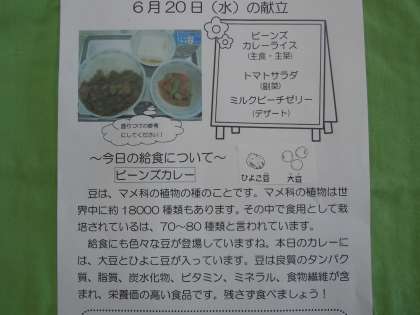 6月20日（水）の献立
ビーンズ
カレーライス
（主食・主菜）
トマトサラダ
（副菜）
ミルクピーチゼリー
（デザート）
盛りつけの参考
にしてください！
～今日の給食について～
ビーンズカレー
ひよこ豆
大豆
豆は、マメ科の植物の種のことです。マメ科の植物は世
界中に約18000種類もあります。その中で食用として栽
培されているは、70～80種類と言われています。
給食にも色々な豆が登場していますね。本日のカレーに
は、大豆とひよこ豆が入っています。豆は良質のタンパク
質、脂質、炭水化物、ビタミン、ミネラル、食物繊維が含
まれ、栄養価の高い食品です。残さず食べましょう！